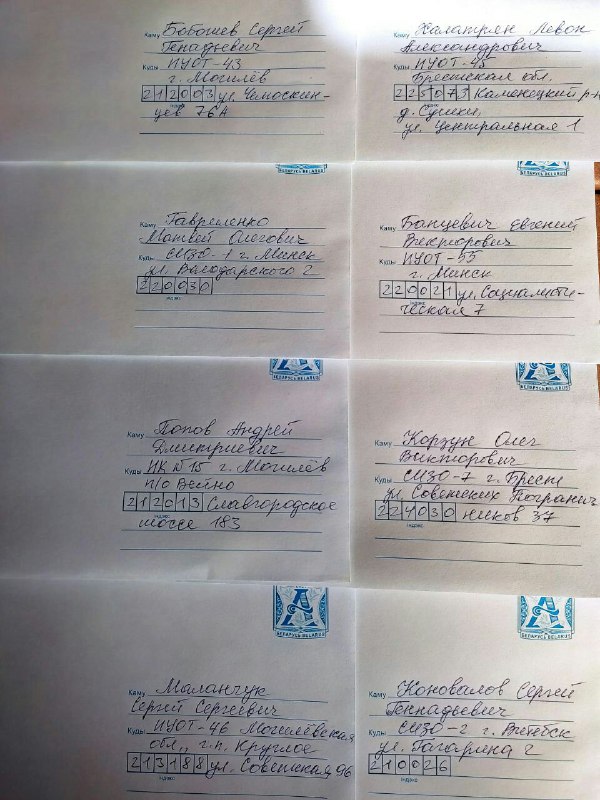 Каму Бобошев Сергей
Генадьевич
Куды ИУОТ-43
г. Могилёв
212003 ул. Чемоскин-
індэкс
цев 76А
Каму Халатрян Левон
Александрович
Куды ИУОТ-45
Брестская обл.
225073 Каменецкий р-н
індэкс
д. Сушки,
ул. Центральная 1
БЕЛАРУСЬ BELARUS
Каму Гавриленко
Матвей Олегович
Куды СИЗО-1 г. Минск
ул. Володарского 2
220030
індэкс
БЕЛАРУСЬ BELARUS
Каму Банцевич Евгений
Викторович
Куды ИУОТ-55
г. Минск
220021 ул. Социалисти-
індэкс
ческая 7
А
БЕЛАРУСЬ BELARUS
Каму Попов Андрей
Дмитриевич
Куды ИК №15 г. Могилёв
п/о Вейно
212013 Славгородское
індэкс
шоссе 183
А
БЕЛАРУСЬ BELARUS
Каму Корзун Олег
Викторович
Куды СИЗО-7 г. Брест
ул. Советских Погранич-
224030 ников 37
індэкс
А
БЕЛАРУСЬ BELARUS
Каму Маланчук
Сергей Сергеевич
Куды ИУОТ-46 Могилёвская
обл., г.п. Круглое
213188 ул. Советская, 96
А
БЕЛАРУСЬ BELARUS
Каму Коновалов Сергей
Геннадьевич
Куды СИЗО-2 г. Витебск
ул. Гагарина 2
210026
індэкс